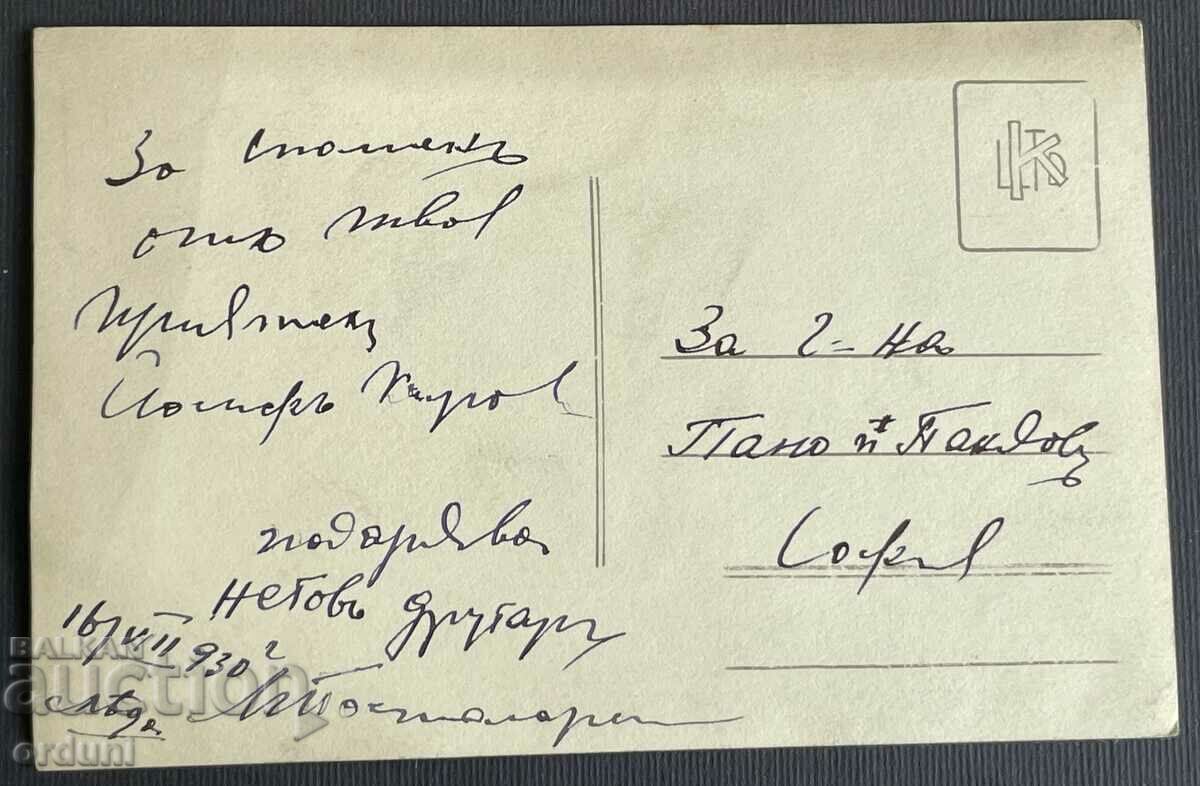 За споменъ
отъ твоя
приятель
Йосифъ Киров
подарява
неговъ другарь
16/VIII 930 г
сряда.
За г-на
Пано п. Панковъ
София
BALKAN
auction
orduni